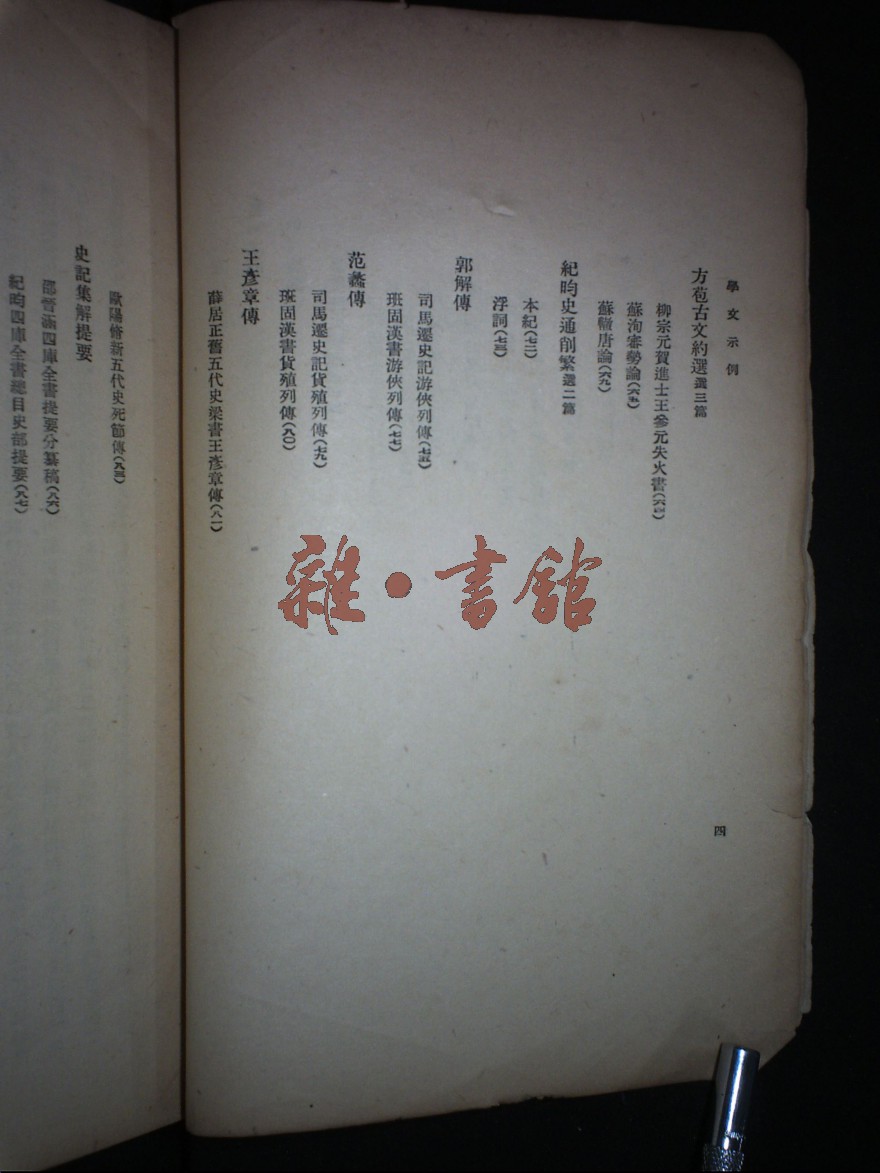 學文示例
方苞古文約選選三篇
柳宗元賀進士王參元失火書(六四)
蘇洵審勢論(六五)
蘇轍唐論(六九)
紀昀史通削繁選二篇
本紀(七二)
浮詞(七三)
郭解傳
司馬遷史記游俠列傳(七五)
班固漢書游俠列傳(七七)
范蠡傳
司馬遷史記貨殖列傳(七九)
班固漢書貨殖列傳(八〇)
王彥章傳
薛居正舊五代史梁書王彥章傳(八一)
四
歐陽脩新五代史死節傳(八三)
史記集解提要
邵晉涵四庫全書提要分纂稿(八六)
紀昀四庫全書總目史部提要(八七)
雜·書館